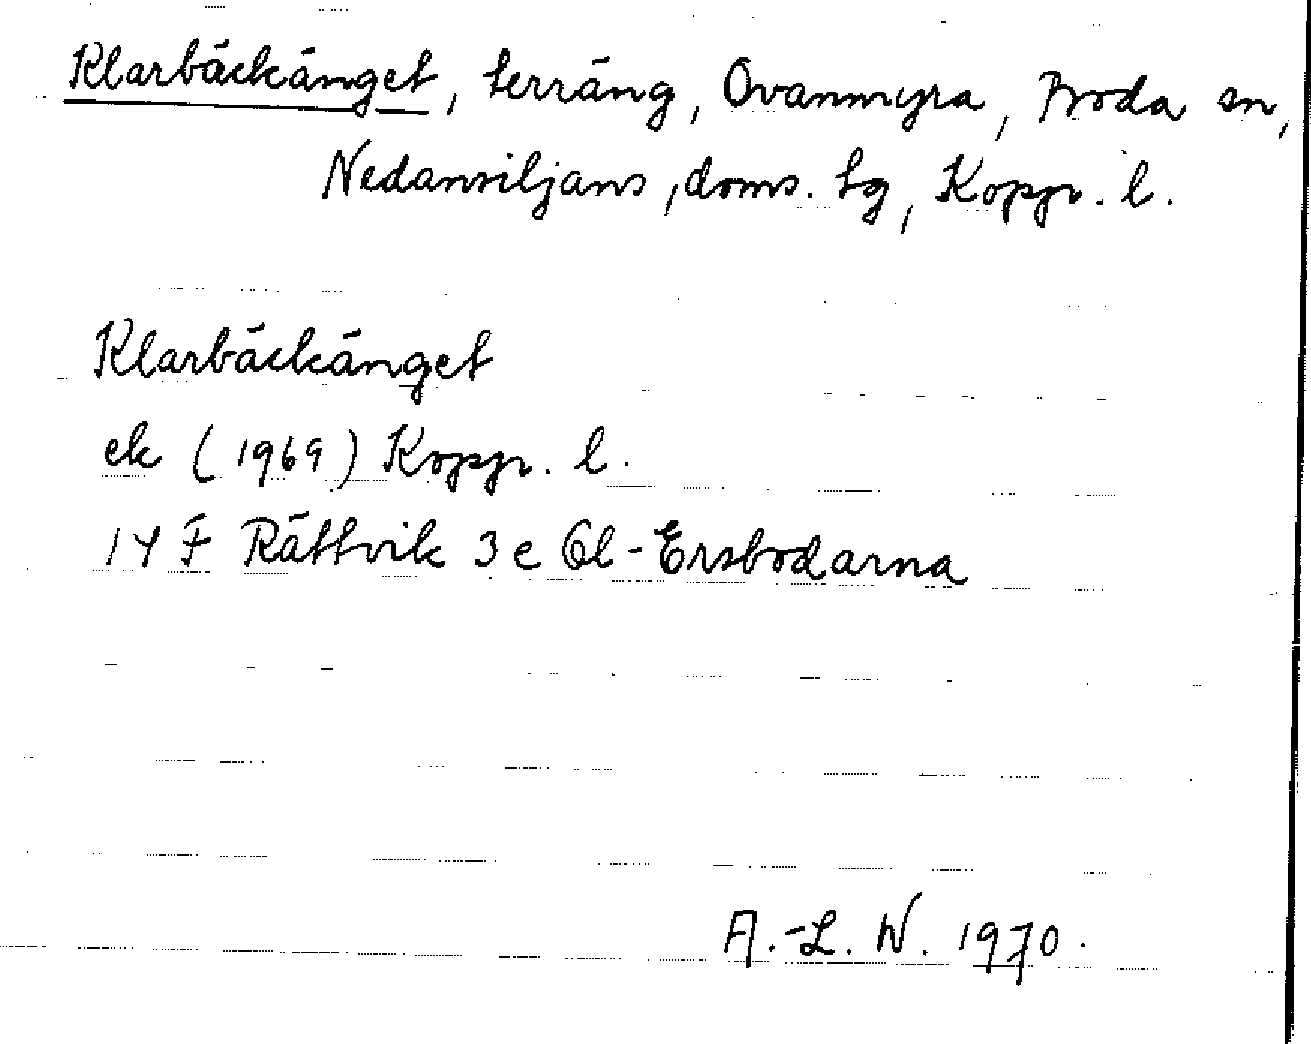 Klarbäckänget, terräng, Ovanmyra, Boda sn,
Nedansiljans, doms. tg, Kopp. l.
Klarbäckänget
ek (1969) Kopp. l.
14 F Rättvik 3 e Ol-Ersbodarna
A.-L. W. 1970.